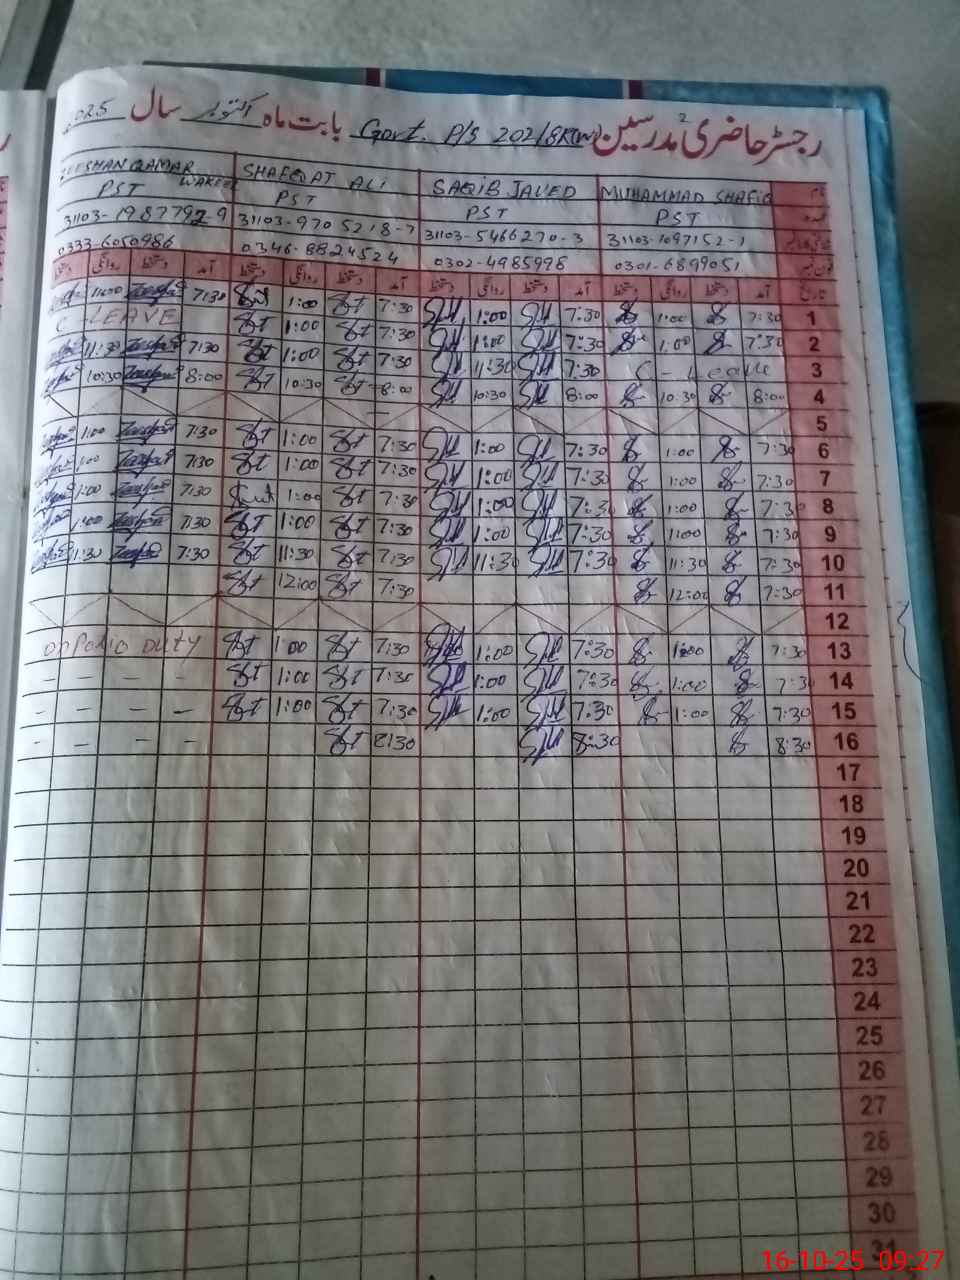 رجسٹر حاضری مدرسین Govt. P/S 202/8R(W) بابت ماہ اکتوبر سال 2025
ZEESHAN QAMAR WAKEEL SHAFEQAT ALI SAQIB JAVED MUHAMMAD SHAFIQ نام
PST PST PST PST عہدہ
31103-1987792-9 31103-9705218-7 31103-5466270-3 31103-1097152-1
0333-6050986 0346-8824524 0302-4985998 0301-6899051
دستخط روانگی دستخط آمد دستخط روانگی دستخط آمد دستخط روانگی دستخط آمد دستخط روانگی دستخط آمد تاریخ
7:30 1:00 7:30 1:00 7:30 1:00 7:30 1
C LEAVE 1:00 7:30 1:00 7:30 1:00 7:30 2
11:30 7:30 1:00 7:30 11:30 7:30 C - Leave 3
10:30 8:00 10:30 8:00 10:30 8:00 10:30 8:00 4
5
1:00 7:30 1:00 7:30 1:00 7:30 1:00 7:30 6
1:00 7:30 1:00 7:30 1:00 7:30 1:00 7:30 7
1:00 7:30 1:00 7:30 1:00 7:30 1:00 7:30 8
1:00 7:30 1:00 7:30 1:00 7:30 1:00 7:30 9
11:30 7:30 11:30 7:30 11:30 7:30 11:30 7:30 10
12:00 7:30 12:00 7:30 11
12
on Polio DUTY 1:00 7:30 1:00 7:30 1:00 7:30 13
– – – – 1:00 7:30 1:00 7:30 1:00 7:30 14
– – – – 1:00 7:30 1:00 7:30 1:00 7:30 15
– – – – 8:30 8:30 8:30 16
17
18
19
20
21
22
23
24
25
26
27
28
29
30
31
16-10-25 09:27